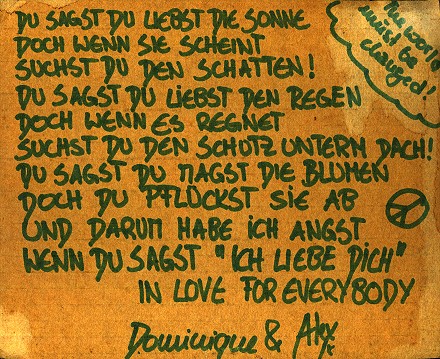 DU SAGST DU LIEBST DIE SONNE
DOCH WENN SIE SCHEINT
SUCHST DU DEN SCHATTEN!
DU SAGST DU LIEBST DEN REGEN
DOCH WENN ES REGNET
SUCHST DU DEN SCHUTZ UNTERM DACH!
DU SAGST DU MAGST DIE BLUMEN
DOCH DU PFLÜCKST SIE AB
UND DARUM HABE ICH ANGST
WENN DU SAGST "ICH LIEBE DICH"
IN LOVE FOR EVERYBODY
Dominique &
The world
must be
changed!